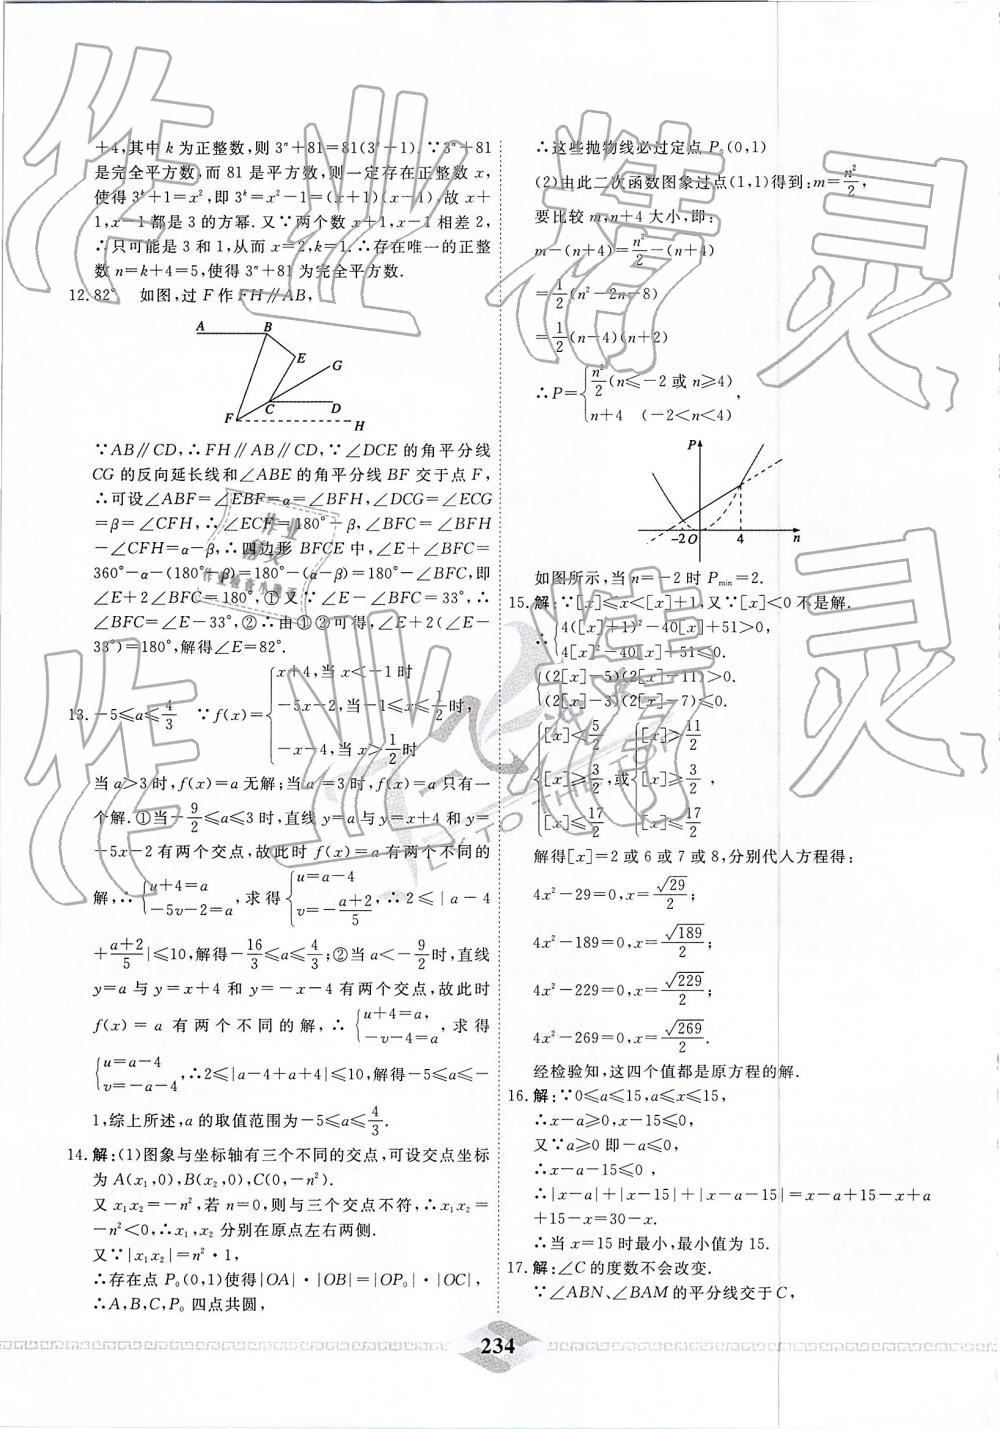 +4,其中 k 为正整数,则 3ⁿ+81=81(3ᵏ+1).∵3ⁿ+81
是完全平方数,而 81 是平方数,则一定存在正整数 x,
使得 3ᵏ+1=x²,即 3ᵏ=x²-1=(x+1)(x-1).故 x+
1,x-1 都是 3 的方幂.又∵两个数 x+1,x-1 相差 2,
∴只可能是 3 和 1,从而 x=2,k=1.∴存在唯一的正整
数 n=k+4=5,使得 3ⁿ+81 为完全平方数.
12.82° 如图,过 F 作 FH∥AB,
A B
E
G
C D
F H
∵AB∥CD,∴FH∥AB∥CD,∵∠DCE 的角平分线
CG 的反向延长线和∠ABE 的角平分线 BF 交于点 F,
∴可设∠ABF=∠EBF=α=∠BFH,∠DCG=∠ECG
=β=∠CFH,∴∠ECF=180°-β,∠BFC=∠BFH
-∠CFH=α-β,∴四边形 BFCE 中,∠E+∠BFC=
360°-α-(180°-β)=180°-(α-β)=180°-∠BFC,即
∠E+2∠BFC=180°,①又∵∠E-∠BFC=33°,∴
∠BFC=∠E-33°,②∴由①②可得,∠E+2(∠E-
33°)=180°,解得∠E=82°.
13.-5≤a≤4/3 ∵f(x)={x+4,当 x<-1 时
-5x-2,当-1≤x≤1/2时,
-x-4,当 x>1/2时
当 a>3 时,f(x)=a 无解;当 a=3 时,f(x)=a 只有一
个解.①当-9/2≤a≤3 时,直线 y=a 与 y=x+4 和 y=
-5x-2 有两个交点,故此时 f(x)=a 有两个不同的
解,∴{u+4=a
-5v-2=a,求得{u=a-4
v=-(a+2)/5,∴2≤|a-4
+(a+2)/5|≤10,解得-16/3≤a≤4/3;②当 a<-9/2时,直线
y=a 与 y=x+4 和 y=-x-4 有两个交点,故此时
f(x)=a 有两个不同的解,∴{u+4=a,
-v-4=a,求得
{u=a-4
v=-a-4,∴2≤|a-4+a+4|≤10,解得-5≤a≤-
1,综上所述,a 的取值范围为-5≤a≤4/3.
14.解:(1)图象与坐标轴有三个不同的交点,可设交点坐标
为 A(x₁,0),B(x₂,0),C(0,-n²).
又 x₁x₂=-n²,若 n=0,则与三个交点不符,∴x₁x₂=
-n²<0,∴x₁,x₂ 分别在原点左右两侧.
又∵|x₁x₂|=n²·1,
∴存在点 P₀(0,1)使得|OA|·|OB|=|OP₀|·|OC|,
∴A,B,C,P₀ 四点共圆,
∴这些抛物线必过定点 P₀(0,1)
(2)由此二次函数图象过点(1,1)得到:m=n²/2,
要比较 m,n+4 大小,即:
m-(n+4)=n²/2-(n+4)
=1/2(n²-2n-8)
=1/2(n-4)(n+2)
∴P={n²/2(n≤-2 或 n≥4)
n+4 (-2<n<4),
P
-2 O 4 n
如图所示,当 n=-2 时 Pmin=2.
15.解:∵[x]≤x<[x]+1,又∵[x]<0 不是解.
∴{4([x]+1)²-40[x]+51>0,
4[x]²-40[x]+51≤0.
{(2[x]-5)(2[x]-11)>0.
(2[x]-3)(2[x]-17)≤0.
{[x]<5/2 {[x]>11/2
[x]≥3/2,或 [x]≥3/2 ,
[x]≤17/2 [x]≤17/2
解得[x]=2或 6 或 7 或 8,分别代入方程得:
4x²-29=0,x=√29/2;
4x²-189=0,x=√189/2;
4x²-229=0,x=√229/2;
4x²-269=0,x=√269/2.
经检验知,这四个值都是原方程的解.
16.解:∵0≤a≤15,a≤x≤15,
∴x-a≥0,x-15≤0,
又∵a≥0 即-a≤0,
∴x-a-15≤0,
∴|x-a|+|x-15|+|x-a-15|=x-a+15-x+a
+15-x=30-x.
∴当 x=15 时最小,最小值为 15.
17.解:∠C 的度数不会改变.
∵∠ABN、∠BAM的平分线交于 C,
234
作业精灵
作业精灵